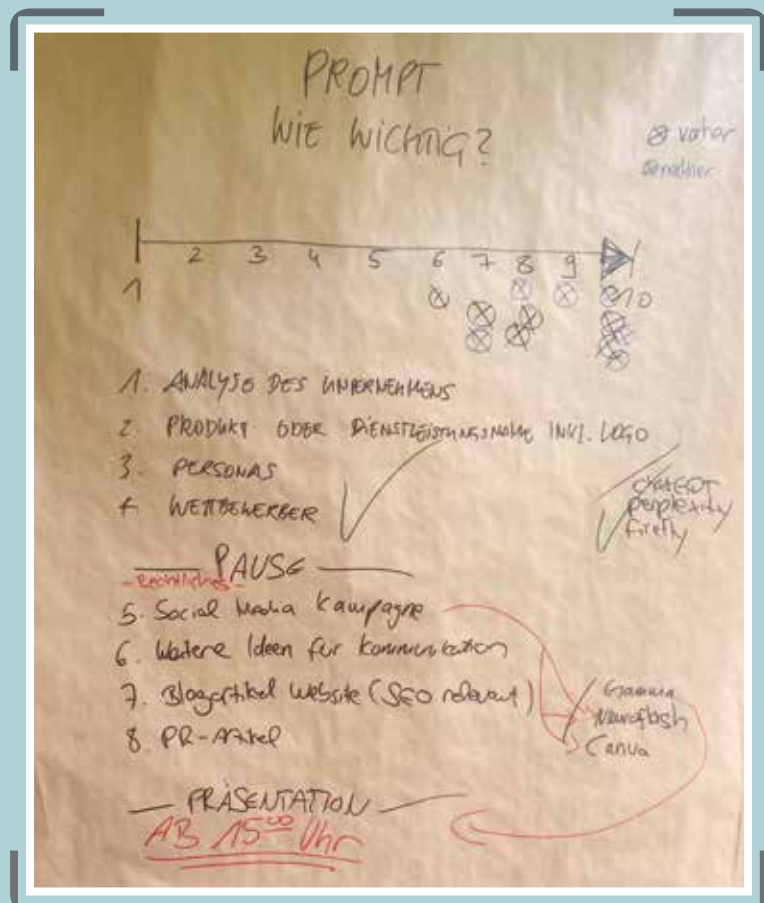 PROMPT
WIE WICHTIG?
vorher
nachher
2 3 4 5 6 7 8 9
1 10
1. ANALYSE DES UNTERNEHMENS
2. PRODUKT ODER DIENSTLEISTUNGSNAME INKL. LOGO
3. PERSONAS
4 WETTBEWERBER
ChatGPT
perplexity
firefly
PAUSE
- Rechtliches -
5. Social Media Kampagne
6. Weitere Ideen für Kommunikation
7. Blogartikel Website (SEO relevant)
8. PR-Artikel
Gamma
Neuroflash
Canva
PRÄSENTATION
AB 15 00 Uhr